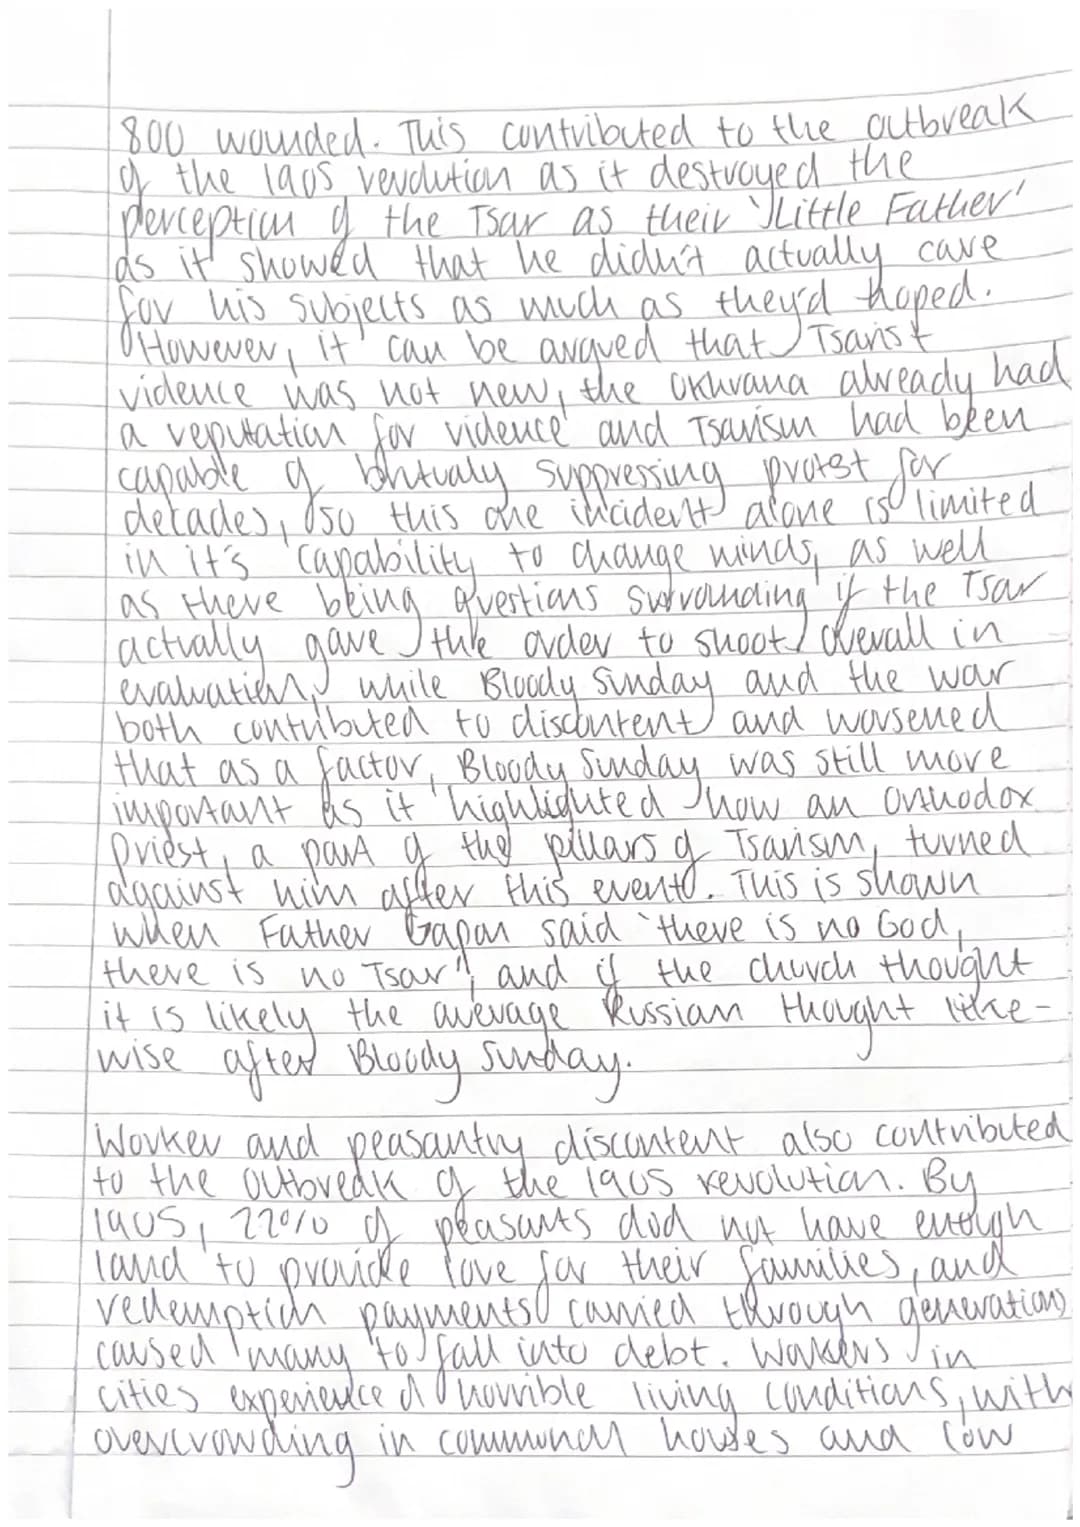 800 wounded. This contributed to the outbreak
of the 1905 revolution as it destroyed the
perception of the Tsar as their 'Little Father'
as it showed that he didn't actually care
for his subjects as much as they'd hoped.
However, it can be argued that Tsarist
violence was not new, the Okhrana already had
a reputation for violence and Tsarism had been
capable of brutualy suppressing protest for
decades, so this one incident alone is limited
in it's capability to change minds, as well
as there being questions surrounding if the Tsar
actually gave the order to shoot. Overall in
evaluation, while Bloody Sunday and the war
both contributed to discontent and worsened
that as a factor, Bloody Sunday was still more
important as it highlighted how an Orthodox
Priest, a part of the pillars of Tsarism, turned
against him after this event. This is shown
when Father Gapon said 'there is no God,
there is no Tsar", and if the church thought
it is likely the average Russian thought like-
wise after Bloody Sunday.
Worker and peasantry discontent also contributed
to the outbreak of the 1905 revolution. By
1905, 22% of peasants dod not have enough
land to provide for their families, and
redemption payments carried through generations
caused many to fall into debt. Workers in
cities experienced horrible living conditions, with
overcrowding in communal houses and low